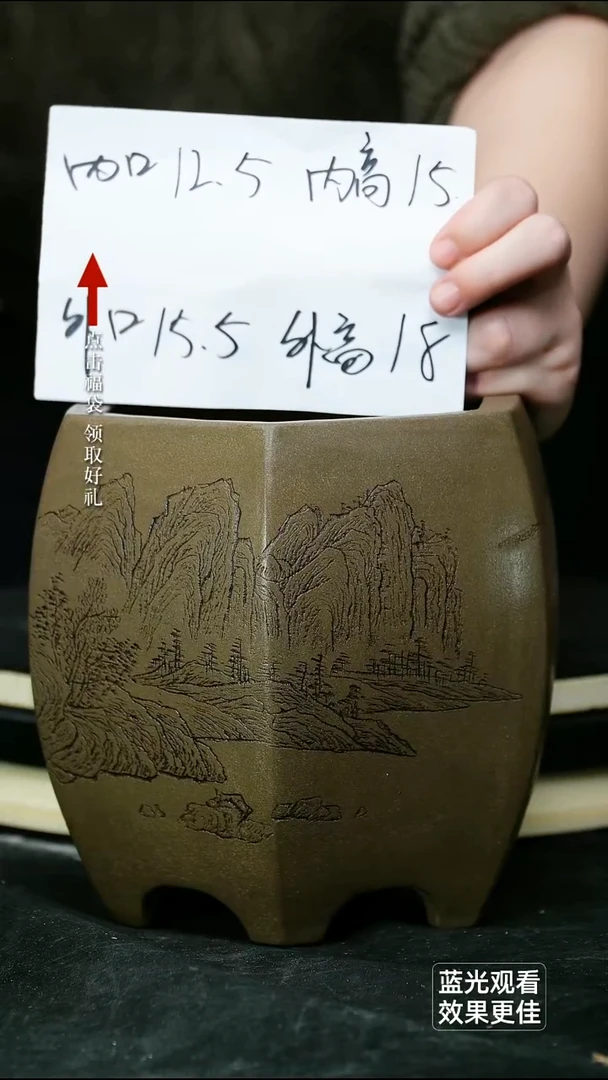 内口 12.5 内高 15.
外口 15.5 外高 18
点击福袋 领取好礼
蓝光观看
效果更佳